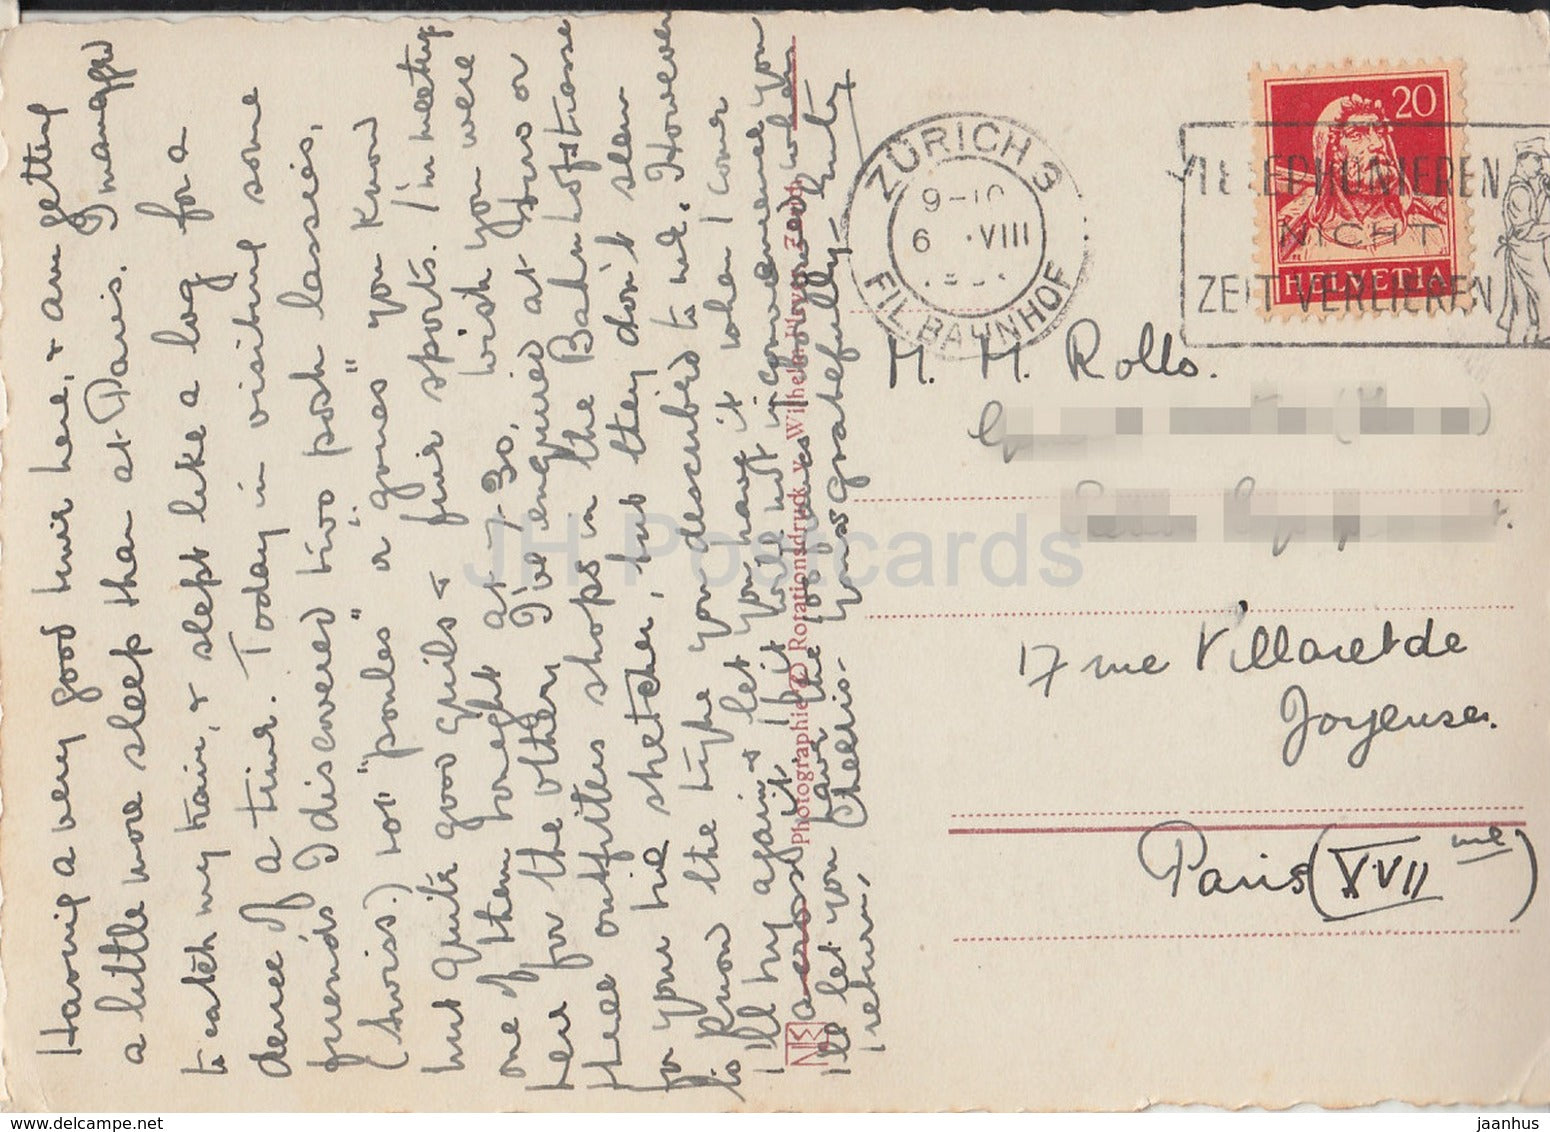 Having a very good time here, & am getting
a little more sleep than at Paris. I managed
to catch my train, & slept like a log for a
deuce of a time. Today in visiting some
friends I discovered two posh lassies,
(Swiss.) not "poules" a "gones" you know
but quite good girls & fine sports. I'm meeting
one of them tonight at 7-30, wish you were
here for the other, I've enquired at two or
three outfitters shops in the Bahnhofstrasse
for your tie stretcher, but they don't seem
to know the type you described to me. However
I'll try again & let you have it when I come
across it. I hit will not inconvenience you
I'll let you have the 40 francs I borrowed when
I return, Cheerio. Yours gratefully –
Photographie © Rotationsdruck v. Wilhelm Pleyer, Zürich
ZÜRICH 3
9-10
6 .VIII
FIL. BAHNHOF
TELEPHONIEREN
NICHT
ZEIT VERLIEREN
20
HELVETIA
M. M. Rolls.
17 rue Villaret de
Joyeuse.
Paris (XVII me)
JH Postcards
www.delcampe.net
jaanhus